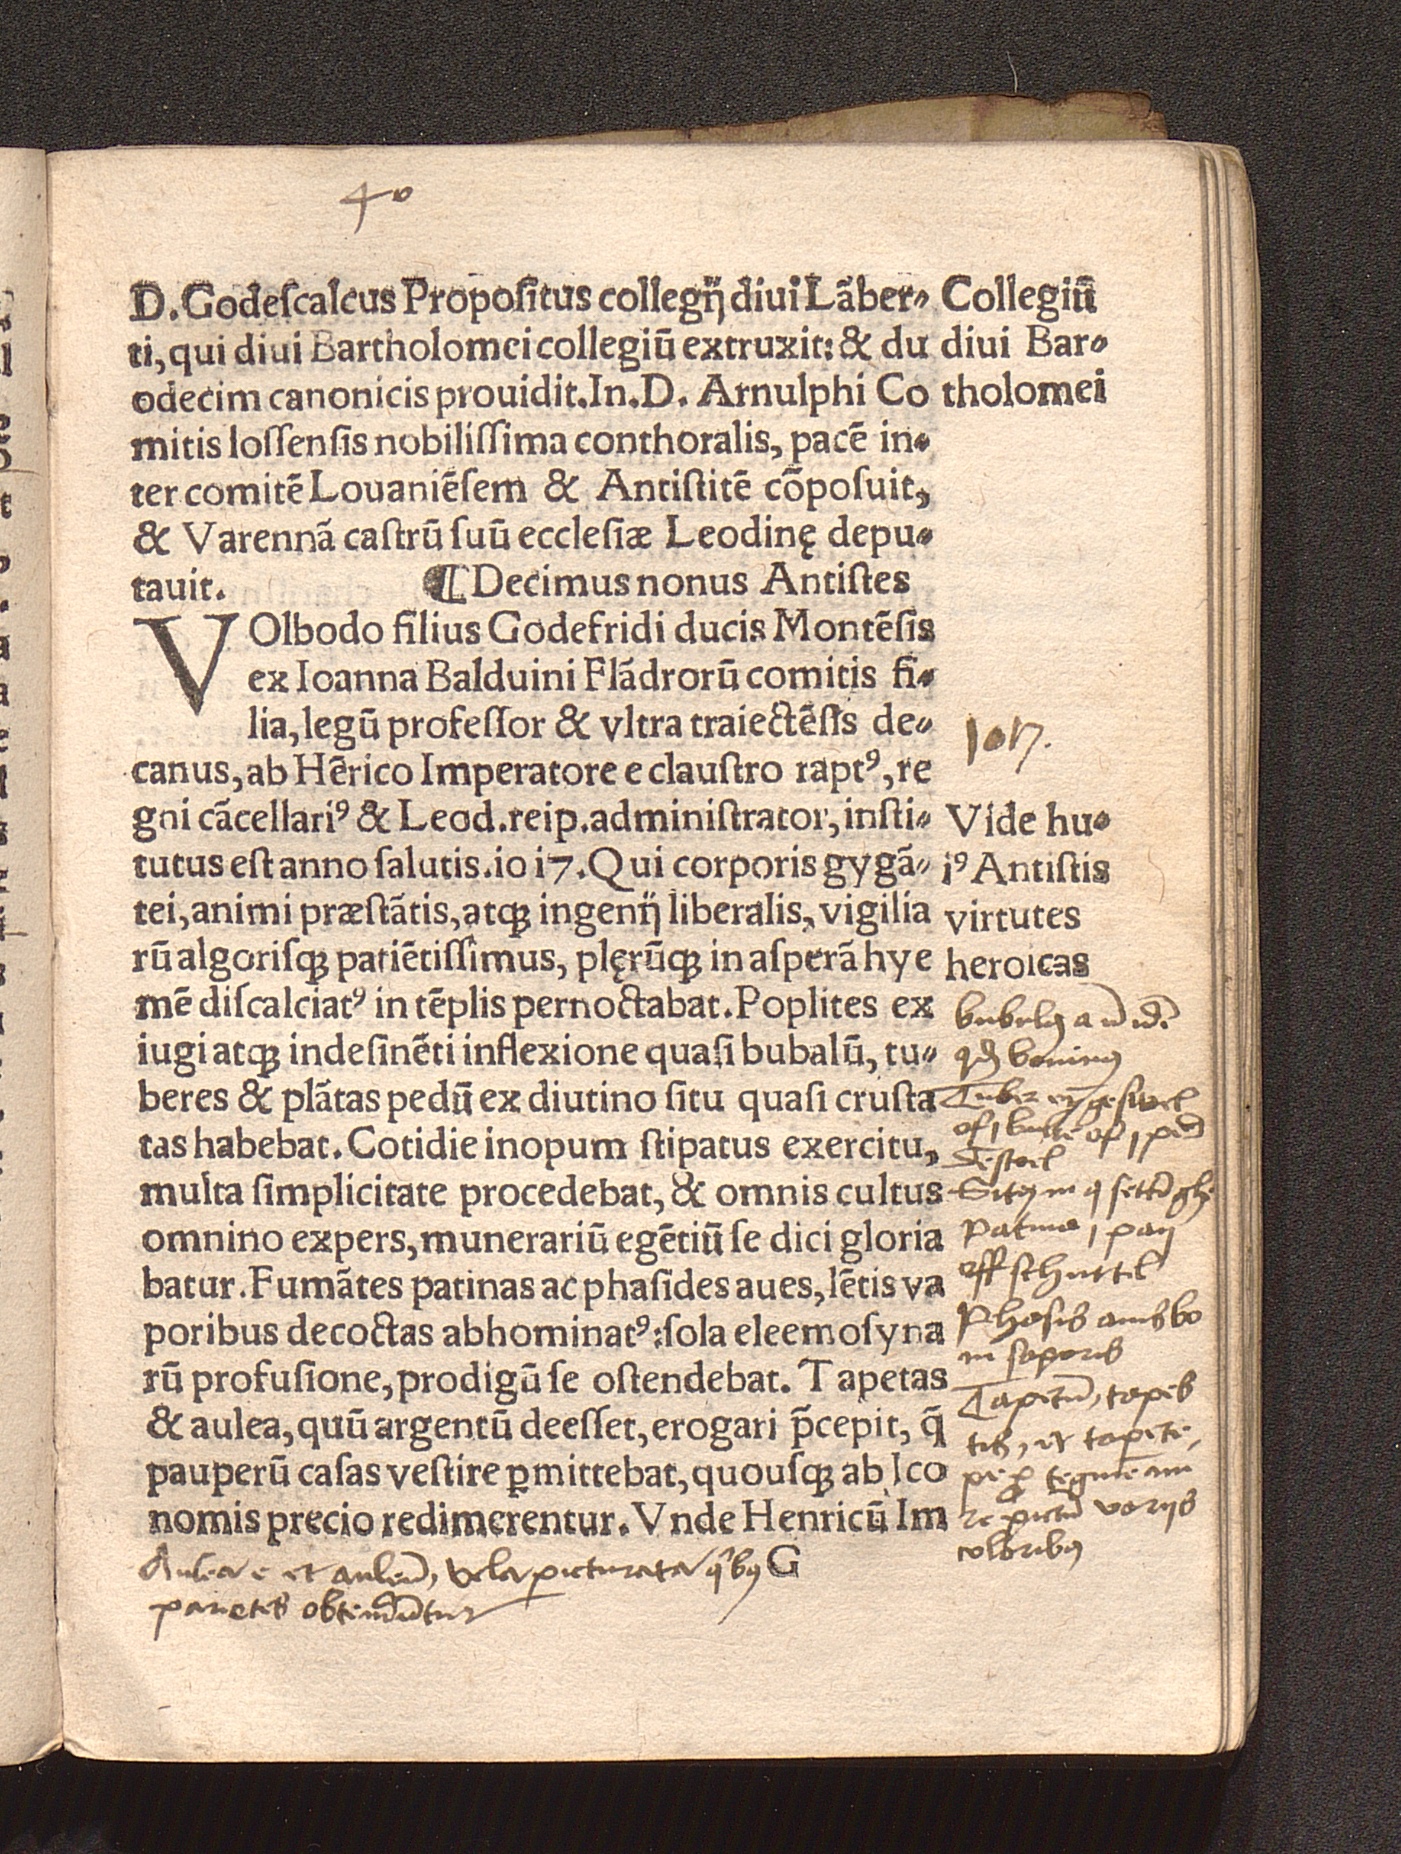 4º
D. Godeſcalcus Propoſitus collegij diui Lãber-
ti, qui diui Bartholomei collegiũ extruxit: & du
odecim canonicis prouidit. In. D. Arnulphi Co
mitis loſſenſis nobiliſſima conthoralis, pacẽ in-
ter comitẽ Louaniẽſem & Antiſtitẽ cõpoſuit,
& Varennã caſtrũ ſuũ eccleſiæ Leodinę depu-
tauit. ¶ Decimus nonus Antiſtes
VOlbodo filius Godefridi ducis Montẽſis
ex Ioanna Balduini Flãdrorũ comitis fi-
lia, legũ profeſſor & vltra traiectẽſis de-
canus, ab Hẽrico Imperatore e clauſtro raptꝰ, re
gni cãcellariꝰ & Leod. reip. adminiſtrator, inſti-
tutus eſt anno ſalutis. io i7. Qui corporis gygã-
tei, animi præſtãtis, atqꝫ ingenij liberalis, vigilia
rũ algoriſqꝫ patiẽtiſſimus, plęrũqꝫ in aſperã hye
mẽ diſcalciatꝰ in tẽplis pernoctabat. Poplites ex
iugi atqꝫ indeſinẽti inflexione quaſi bubalũ, tu-
beres & plãtas pedũ ex diutino ſitu quaſi cruſta
tas habebat. Cotidie inopum ſtipatus exercitu,
multa ſimplicitate procedebat, & omnis cultus
omnino expers, munerariũ egẽtiũ ſe dici gloria
batur. Fumãtes patinas ac phaſides aues, lẽtis va
poribus decoctas abhominatꝰ: ſola eleemoſyna
rũ profuſione, prodigũ ſe oſtendebat. Tapetas
& aulea, quũ argentũ deeſſet, erogari p̃cepit, q̃
pauperũ caſas veſtire ꝑmittebat, quouſqꝫ ab Ico
nomis precio redimerentur. Vnde Henricũ Im
G
Collegiũ
diui Bar-
tholomei
1017.
Vide hu-
iꝰ Antiſtis
virtutes
heroicas
Patina
off schuttel
Phasis auis bo
ni saporis
Tapetũ, tapes
tis, et tapete,
re pictũ varijs
coloribꝰ
Aulea e et auleũ, vela picturata q̃bꝰ
parietes obtendũtur